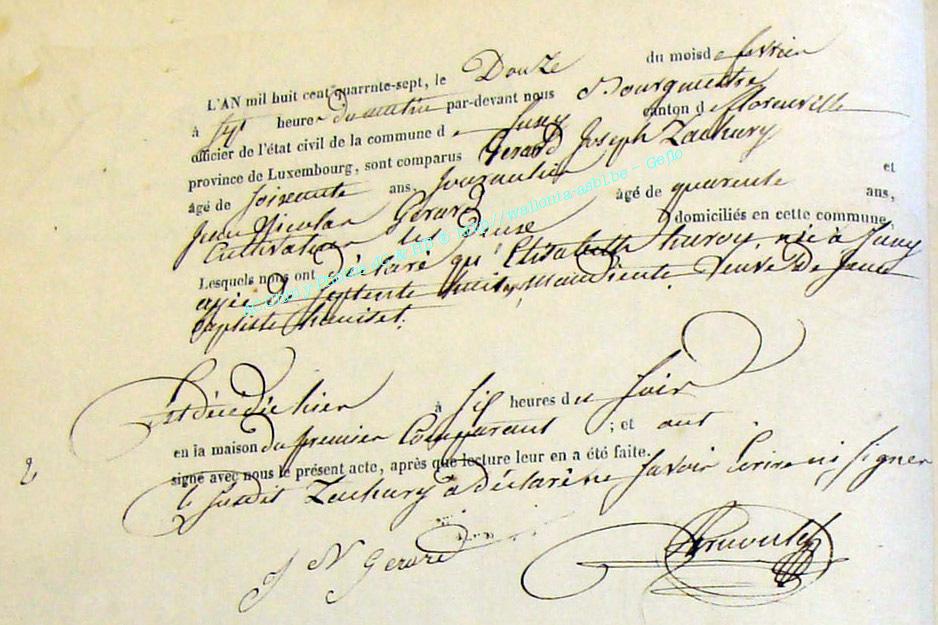 L'AN mil huit cent quarrnte-sept, le Douze du mois de fevrier
à heure du matin par-devant nous Bourgmestre
officier de l'état civil de la commune de Juny canton de florenville
province de Luxembourg, sont comparus Gerard Joseph Zachary
âgé de soixante ans, Journalier et
Jean Nicolas Gérard âgé de quarente ans,
Cultivateur les deux domiciliés en cette commune
Lesquels nous ont déclaré qu'Elisabeth huroy, née à Juny
agée de septente huit ans, mandiente, Veuve De Jean
Baptiste
est décédée hier à six heures du soir
en la maison du premier Comparant ; et ont
signé avec nous le présent acte, après que lecture leur en a été faite.
le susdit Zachary a déclaré ne savoir Ecrire ni signer
J N Gerard
2